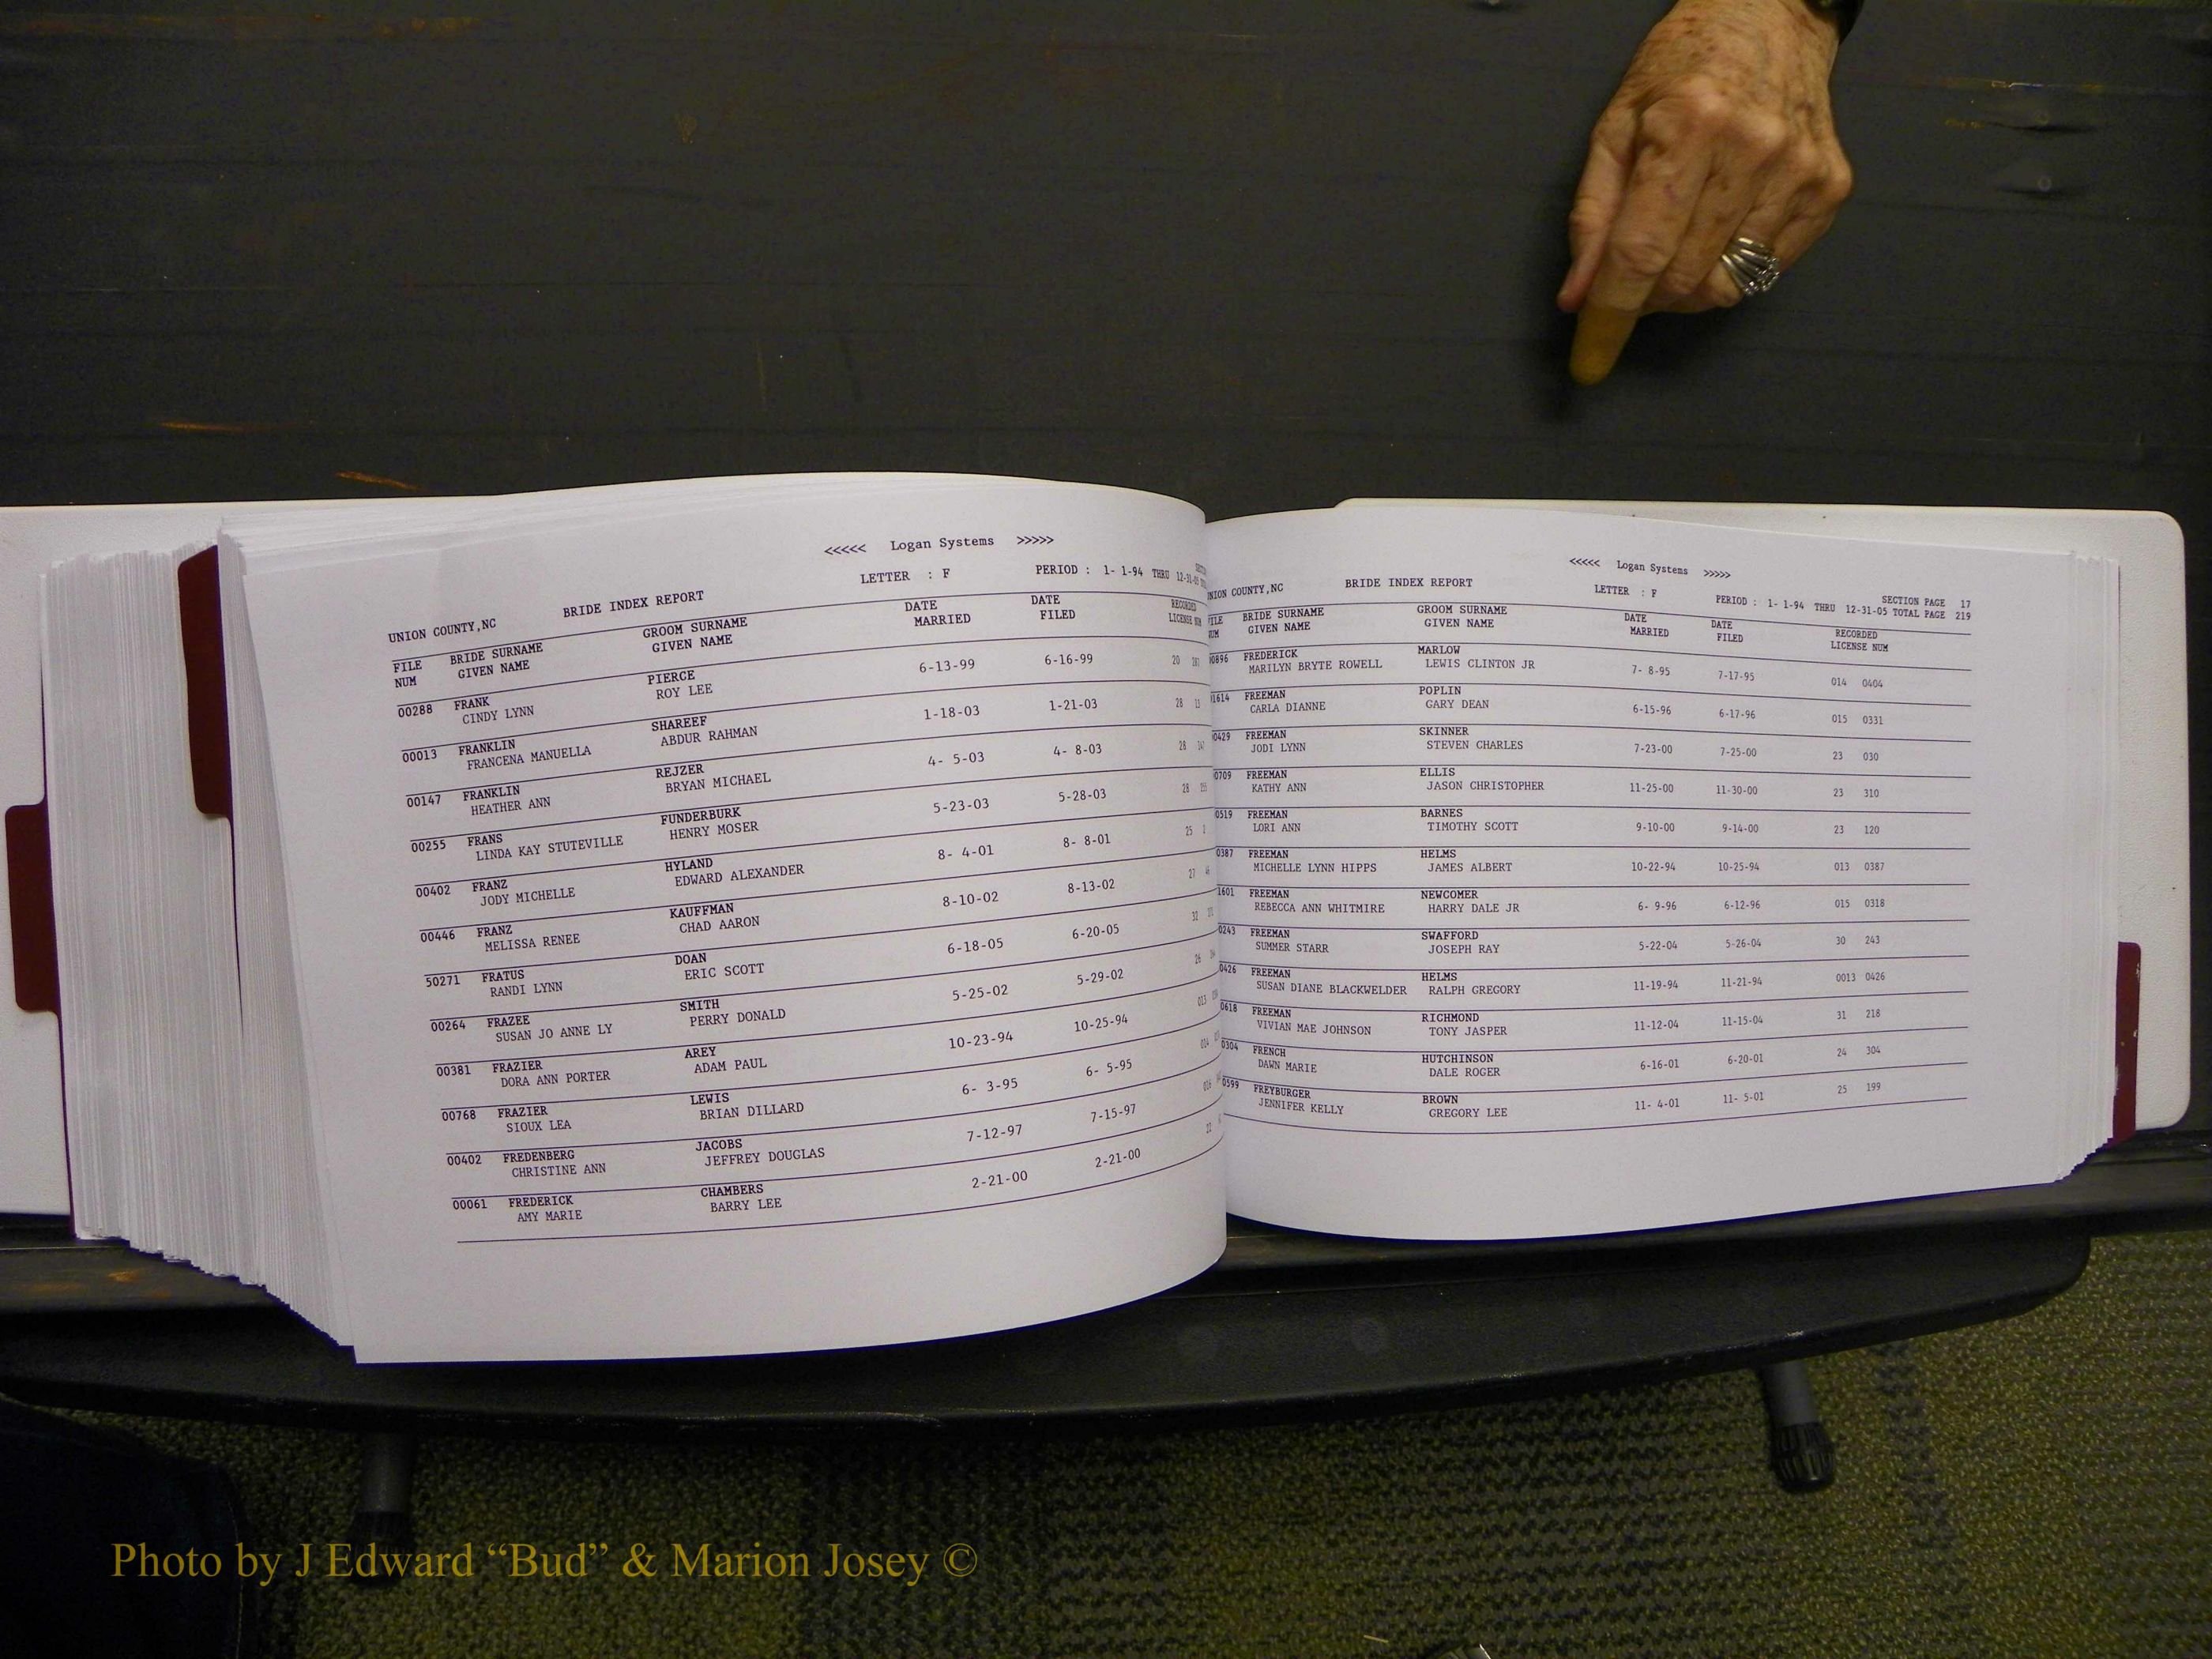 <<<<< Logan Systems >>>>>
UNION COUNTY,NC BRIDE INDEX REPORT LETTER : F PERIOD : 1- 1-94 THRU 12-31-05
FILE BRIDE SURNAME GROOM SURNAME DATE DATE RECORDED
NUM GIVEN NAME GIVEN NAME MARRIED FILED LICENSE NUM
00288 FRANK PIERCE 6-13-99 6-16-99 20
CINDY LYNN ROY LEE
00013 FRANKLIN SHAREEF 1-18-03 1-21-03 28 13
FRANCENA MANUELLA ABDUR RAHMAN
00147 FRANKLIN REJZER 4- 5-03 4- 8-03 28
HEATHER ANN BRYAN MICHAEL
00255 FRANS FUNDERBURK 5-23-03 5-28-03 28
LINDA KAY STUTEVILLE HENRY MOSER
00402 FRANZ HYLAND 8- 4-01 8- 8-01 25
JODY MICHELLE EDWARD ALEXANDER
00446 FRANZ KAUFFMAN 8-10-02 8-13-02 27
MELISSA RENEE CHAD AARON
50271 FRATUS DOAN 6-18-05 6-20-05 32
RANDI LYNN ERIC SCOTT
00264 FRAZEE SMITH 5-25-02 5-29-02 26
SUSAN JO ANNE LY PERRY DONALD
00381 FRAZIER AREY 10-23-94 10-25-94 013
DORA ANN PORTER ADAM PAUL
00768 FRAZIER LEWIS 6- 3-95 6- 5-95 014
SIOUX LEA BRIAN DILLARD
00402 FREDENBERG JACOBS 7-12-97 7-15-97
CHRISTINE ANN JEFFREY DOUGLAS
00061 FREDERICK CHAMBERS 2-21-00 2-21-00 22
AMY MARIE BARRY LEE
<<<<< Logan Systems >>>>>
SECTION PAGE 17
UNION COUNTY,NC BRIDE INDEX REPORT LETTER : F PERIOD : 1- 1-94 THRU 12-31-05 TOTAL PAGE 219
FILE BRIDE SURNAME GROOM SURNAME DATE DATE RECORDED
NUM GIVEN NAME GIVEN NAME MARRIED FILED LICENSE NUM
0896 FREDERICK MARLOW 7- 8-95 7-17-95 014 0404
MARILYN BRYTE ROWELL LEWIS CLINTON JR
1614 FREEMAN POPLIN 6-15-96 6-17-96 015 0331
CARLA DIANNE GARY DEAN
0429 FREEMAN SKINNER 7-23-00 7-25-00 23 030
JODI LYNN STEVEN CHARLES
0709 FREEMAN ELLIS 11-25-00 11-30-00 23 310
KATHY ANN JASON CHRISTOPHER
0519 FREEMAN BARNES 9-10-00 9-14-00 23 120
LORI ANN TIMOTHY SCOTT
0387 FREEMAN HELMS 10-22-94 10-25-94 013 0387
MICHELLE LYNN HIPPS JAMES ALBERT
1601 FREEMAN NEWCOMER 6- 9-96 6-12-96 015 0318
REBECCA ANN WHITMIRE HARRY DALE JR
0243 FREEMAN SWAFFORD 5-22-04 5-26-04 30 243
SUMMER STARR JOSEPH RAY
0426 FREEMAN HELMS 11-19-94 11-21-94 0013 0426
SUSAN DIANE BLACKWELDER RALPH GREGORY
0618 FREEMAN RICHMOND 11-12-04 11-15-04 31 218
VIVIAN MAE JOHNSON TONY JASPER
0304 FRENCH HUTCHINSON 6-16-01 6-20-01 24 304
DAWN MARIE DALE ROGER
0599 FREYBURGER BROWN 11- 4-01 11- 5-01 25 199
JENNIFER KELLY GREGORY LEE
Photo by J Edward “Bud” & Marion Josey ©